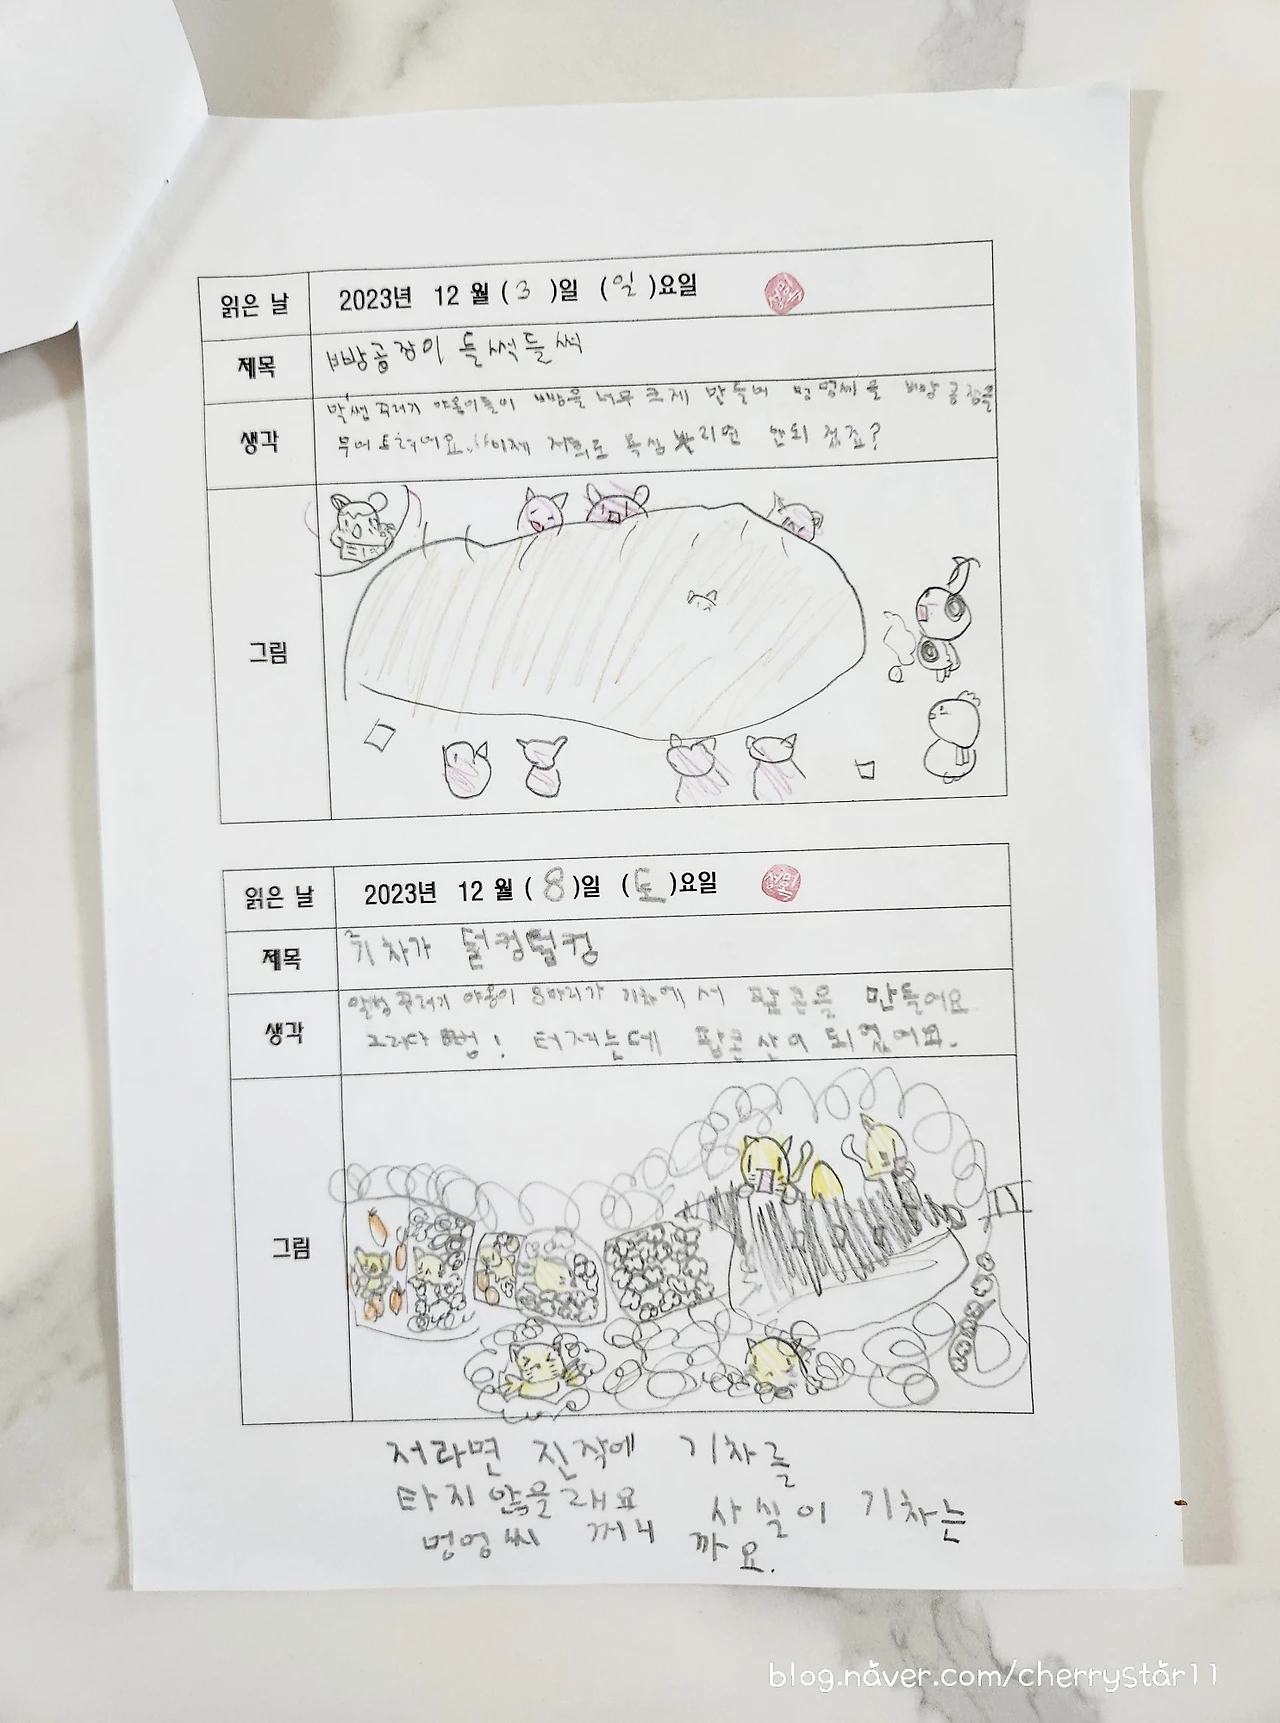 읽은 날 2023년 12 월 ( 3 )일 ( 일 )요일
제목 빵공장이 들썩들썩
생각 꾸러기 야옹이들이 빵을 너무 크게 만들너 멍멍씨을 빵 공장을
무어트려어요. 이제 저희도 욕심 부리면 안되 겠죠?
그림
읽은 날 2023년 12 월 ( 8 )일 ( 토 )요일
제목 기차가 덜컹덜컹
생각 말썽 꾸러기 야옹이 8마리가 기차에서 팝콘을 만들어요
그러다 뻥! 터저는데 팝콘 산이 되었어요.
그림
저라면 진작에 기차를
타지 않을래요 사실이 기차는
멍멍씨 꺼니 까요.
blog.naver.com/cherrystar11